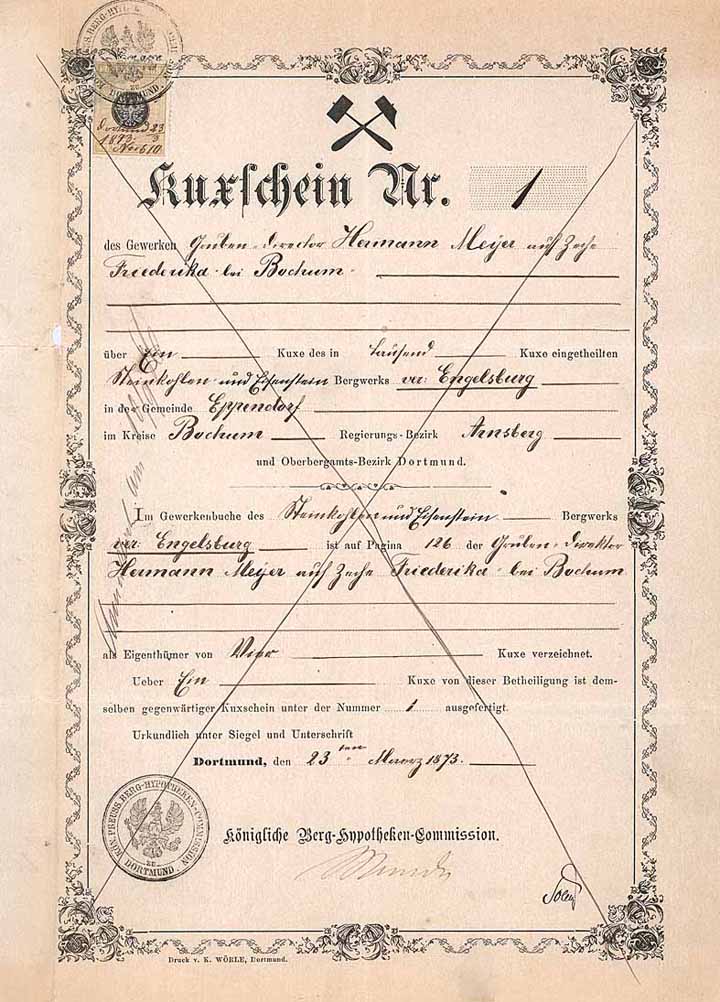 KÖN. PREUSS. BERG-HYP.
DORTMUND
Dortmund 23
1873
Kuxschein Nr. 1
des Gewerken Gruben-Director Hermann Meyer auf Zeche
Friederika bei Bochum
über Ein Kuxe des in tausend Kuxe eingetheilten
Steinkohlen und Eisenstein Bergwerks ver: Engelsburg
in der Gemeinde Eppendorf
im Kreise Bochum Regierungs-Bezirk Arnsberg
und Oberbergamts-Bezirk Dortmund.
Im Gewerkenbuche des Steinkohlen und Eisenstein Bergwerks
ver: Engelsburg ist auf Pagina 126 der Gruben-Direktor
Hermann Meyer auf Zeche Friederika bei Bochum
als Eigenthümer von Vier Kuxe verzeichnet.
Ueber Ein Kuxe von dieser Betheiligung ist dem-
selben gegenwärtiger Kuxschein unter der Nummer 1 ausgefertigt.
Urkundlich unter Siegel und Unterschrift
Dortmund, den 23ten Maerz 1873.
KÖN. PREUSS. BERG-HYPOTHEKEN-COMMISSION
ZU
DORTMUND
Königliche Berg-Hypotheken-Commission.
Druck v. K. WÖRLE, Dortmund.